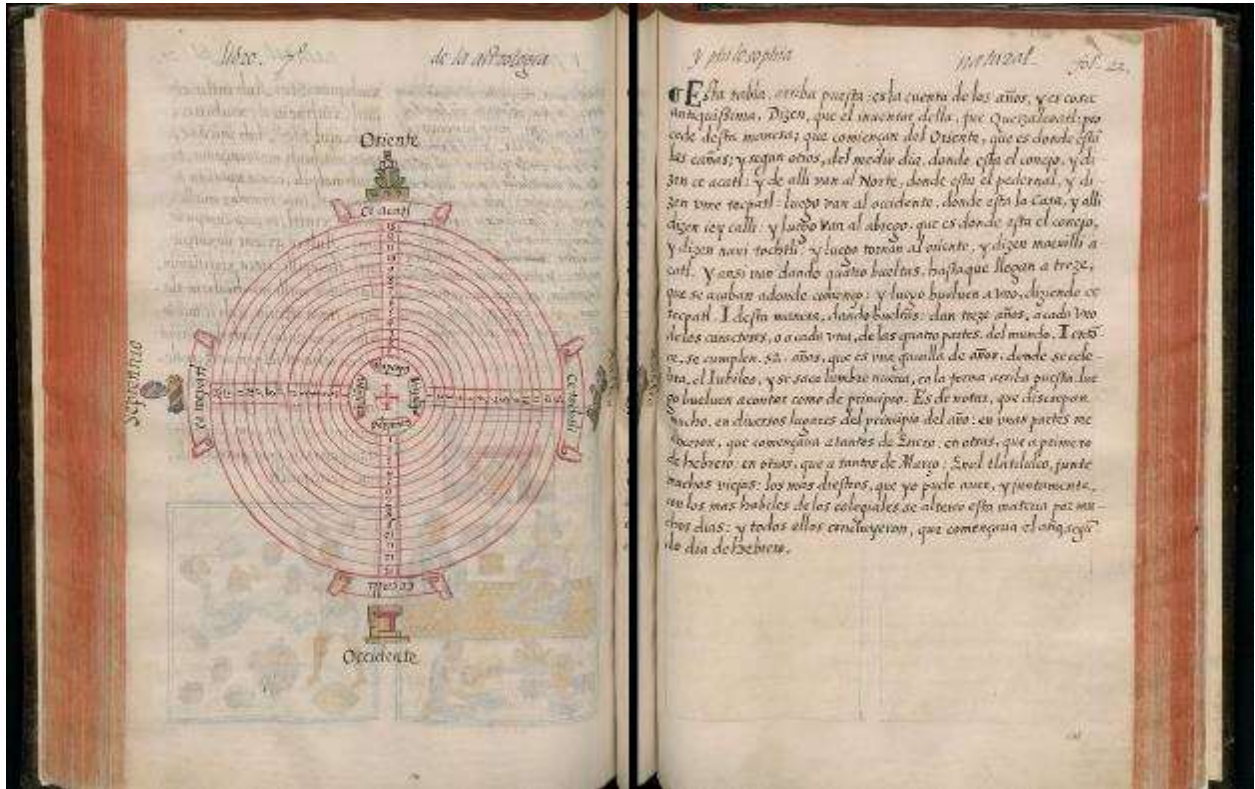 libro. 7º de la astrologia
Oriente
Ce acatl
Septentrio
Ce tecpatl
Ce tochtli
Ce calli
Occidente
y philosophia natural fol. 22.
Esta tabla, arriba puesta: es la cuenta de los años, y es cosa
antiquissima. Dizen, que el inuentor della, fue Quezalcoatl: pro
cede desta manera; que comiençan del Oriente, que es donde estā
las cañas; y segun otros, del medio dia, donde esta el conejo, y di
zen ce acatl: y de alli van al Norte, donde esta el pedernal, y di
zen vme tecpatl: luego van al occidente, donde esta la Casa, y alli
dizen iey calli: y luego van al abrego, que es donde esta el conejo,
y dizen naui tochtli: y luego tornan al oriente, y dizen macuilli a
catl. Y ansi van dando quatro bueltas, hasta que llegan a treze,
que se acaban adonde començo: y luego bueluen a vno, diziendo ce
tecpatl. I desta manera, dando bueltas: dan treze años, a cada vno
de los caracteres, o a cada vna, de las quatro partes, del mundo. I entō
ce, se cumplen .52. años, que es vna gauilla de años: donde se cele-
bra, el Iubileo, y se saca lumbre nueua, en la forma arriba puesta: lue
go bueluen a contar como de principio. Es de notar, que discrepan
mucho, en diuersos lugares del principio del año: en vnas partes me
dixeron, que començaua a tantos de Enero: en otras, que a primero
de hebrero: en otras, que a tantos de Março: En el tlatilulco, junte
muchos viejos: los mas diestros, que yo pude auer, y juntamente,
con los mas habiles de los colegiales se alterco esta materia por mu
chos dias: y todos ellos concluyeron, que començaua el año, segū
do dia de hebrero.